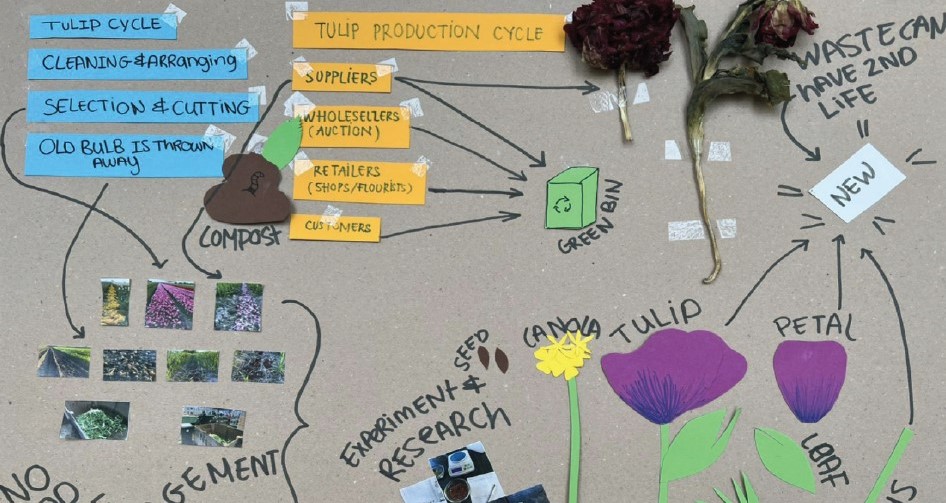 TULIP CYCLE
CLEANING & ARRANGING
SELECTION & CUTTING
OLD BULB IS THROWN
AWAY
TULIP PRODUCTION CYCLE
SUPPLIERS
WHOLESELLERS
(AUCTION)
RETAILERS
(SHOPS/FLOURISTS)
CUSTOMERS
COMPOST
GREEN BIN
WASTE CAN
HAVE 2ND
LIFE
NEW
SEED
CANOLA
TULIP
PETAL
LEAF
EXPERIMENT &
RESEARCH
NO